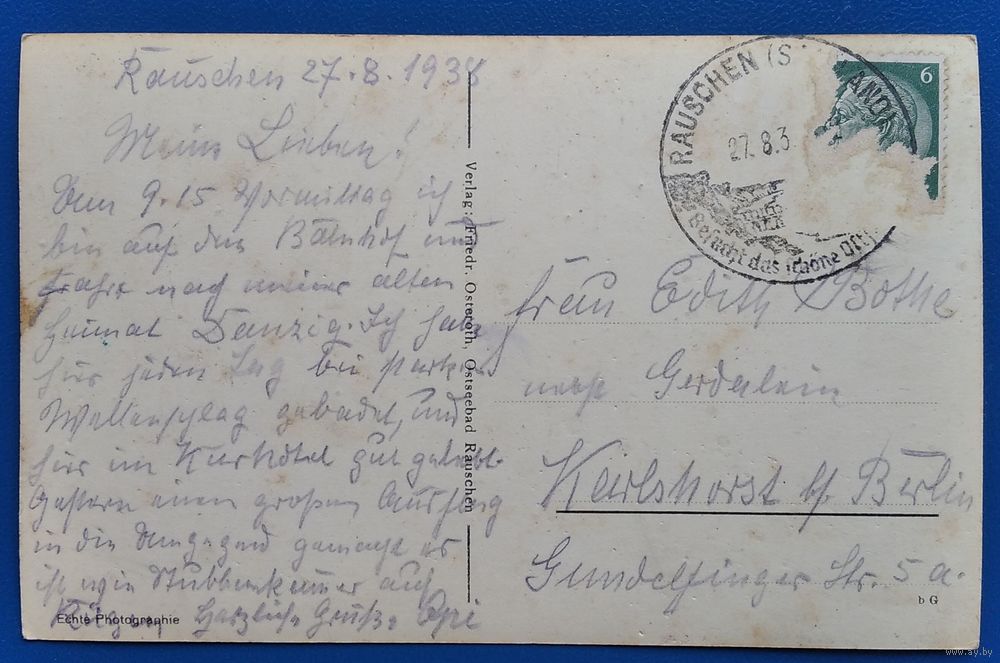 Rauschen 27.8.1938
Meine Lieben!
Um 9.15 Vormittag ich
bin auf dem Bahnhof und
fahre nach meiner alten
Heimat Danzig. Ich habe
hier jeden Tag bei starken
Wellenschlag gebadet, und
hier im Kurhotel gut gelebt.
Gestern einen großen Ausflug
in die Umgegend gemacht es
ist wie Stubbenkammer auf
Rügen Herzliche Grüße Opi
Echte Photographie
Verlag: Friedr. Osteroth, Ostseebad Rauschen
RAUSCHEN (S LAND
27.8.3
Besucht das schöne Ost
6
Frau Edith Bothe
nebst Gerdalein
Karlshorst b/ Berlin
Gundelfinger Str. 5 a.
b G
www.ay.by